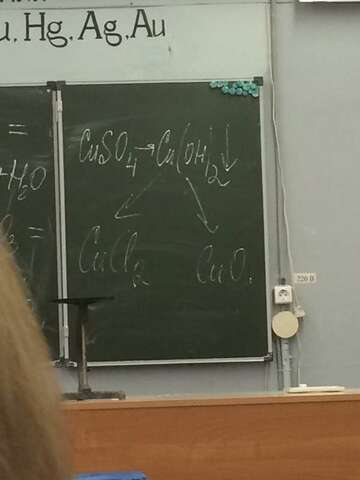 u, Hg, Ag, Au
=
+H₂O
=
CuSO₄ → Cu(OH)₂↓
CuCl₂
CuO
220 В